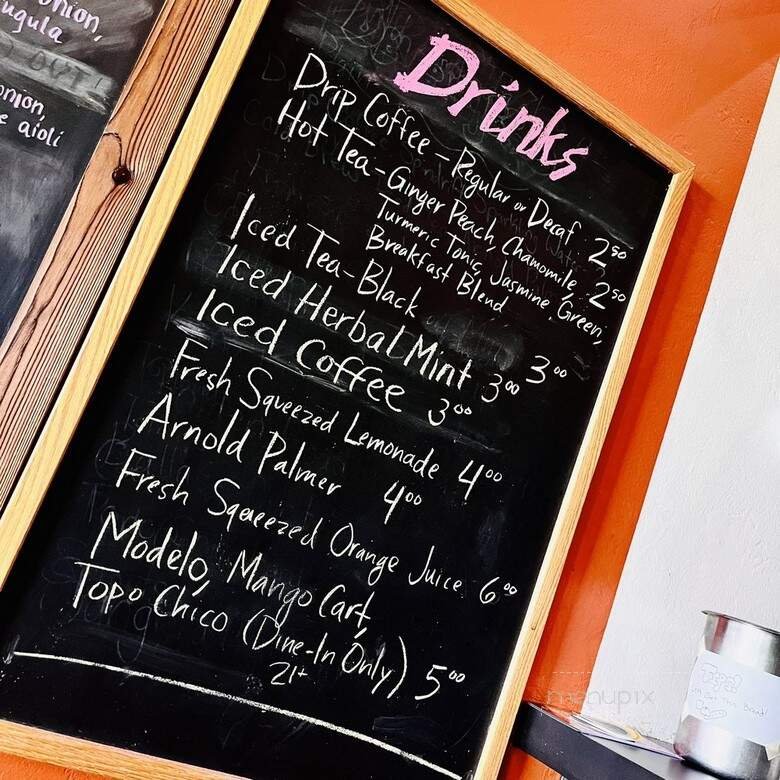 onion,
ugula
OUT!
onion,
e aioli
Drinks
Drip Coffee - Regular or Decaf 2.50
Hot Tea - Ginger Peach, Chamomile 2.50
Turmeric Tonic, Jasmine, Green,
Breakfast Blend
Iced Tea - Black 3.00
Iced Herbal Mint 3.00
Iced Coffee 3.00
Fresh Squeezed Lemonade 4.00
Arnold Palmer 4.00
Fresh Sqeeezed Orange Juice 6.00
Modelo, Mango Cart,
Topo Chico (Dine-In Only) 5.00
21+
menupix